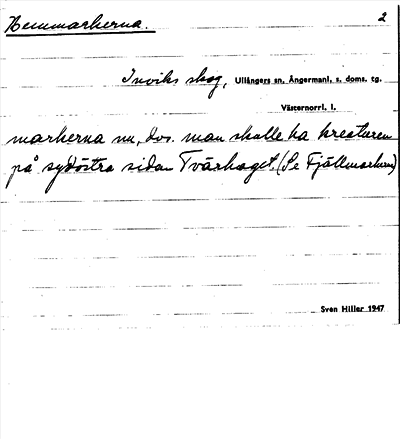 Hemmarkerna. 2
Inviks skog, Ullångers sn. Ångermanl. s. doms. tg.
Västernorrl. l.
markerna nu, dvs. man skulle ha kreaturen
på sydöstra sidan Tvärhaget. (Se Fjällmarkerna)
Sven Hiller 1947